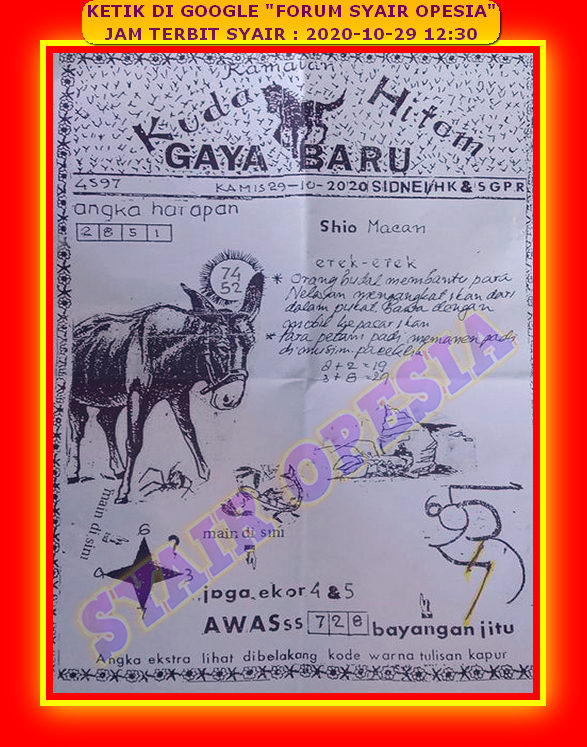 KETIK DI GOOGLE "FORUM SYAIR OPESIA"
JAM TERBIT SYAIR : 2020-10-29 12:30
Ramalan
Kuda Hitam
GAYA BARU
4597 KAMIS 29-10-2020 SIDNEI/HK & SGPR
angka harapan
2 8 5 1
Shio Macan
74
52
erek-erek
* Orang budal membantu para
Nelayan mengangkat ikan dari
dalam pukat, dengan
mobil kepasar ikan
* Para petani padi memanen padi
di musim
2+2=19
3+8=29
main di sini
6
?
9 3
7
main di sini
6
jaga ekor 4 & 5
AWASss 7 2 8 bayangan jitu
Angka ekstra lihat dibelakang kode warna tulisan kapur
SYAIR OPESIA